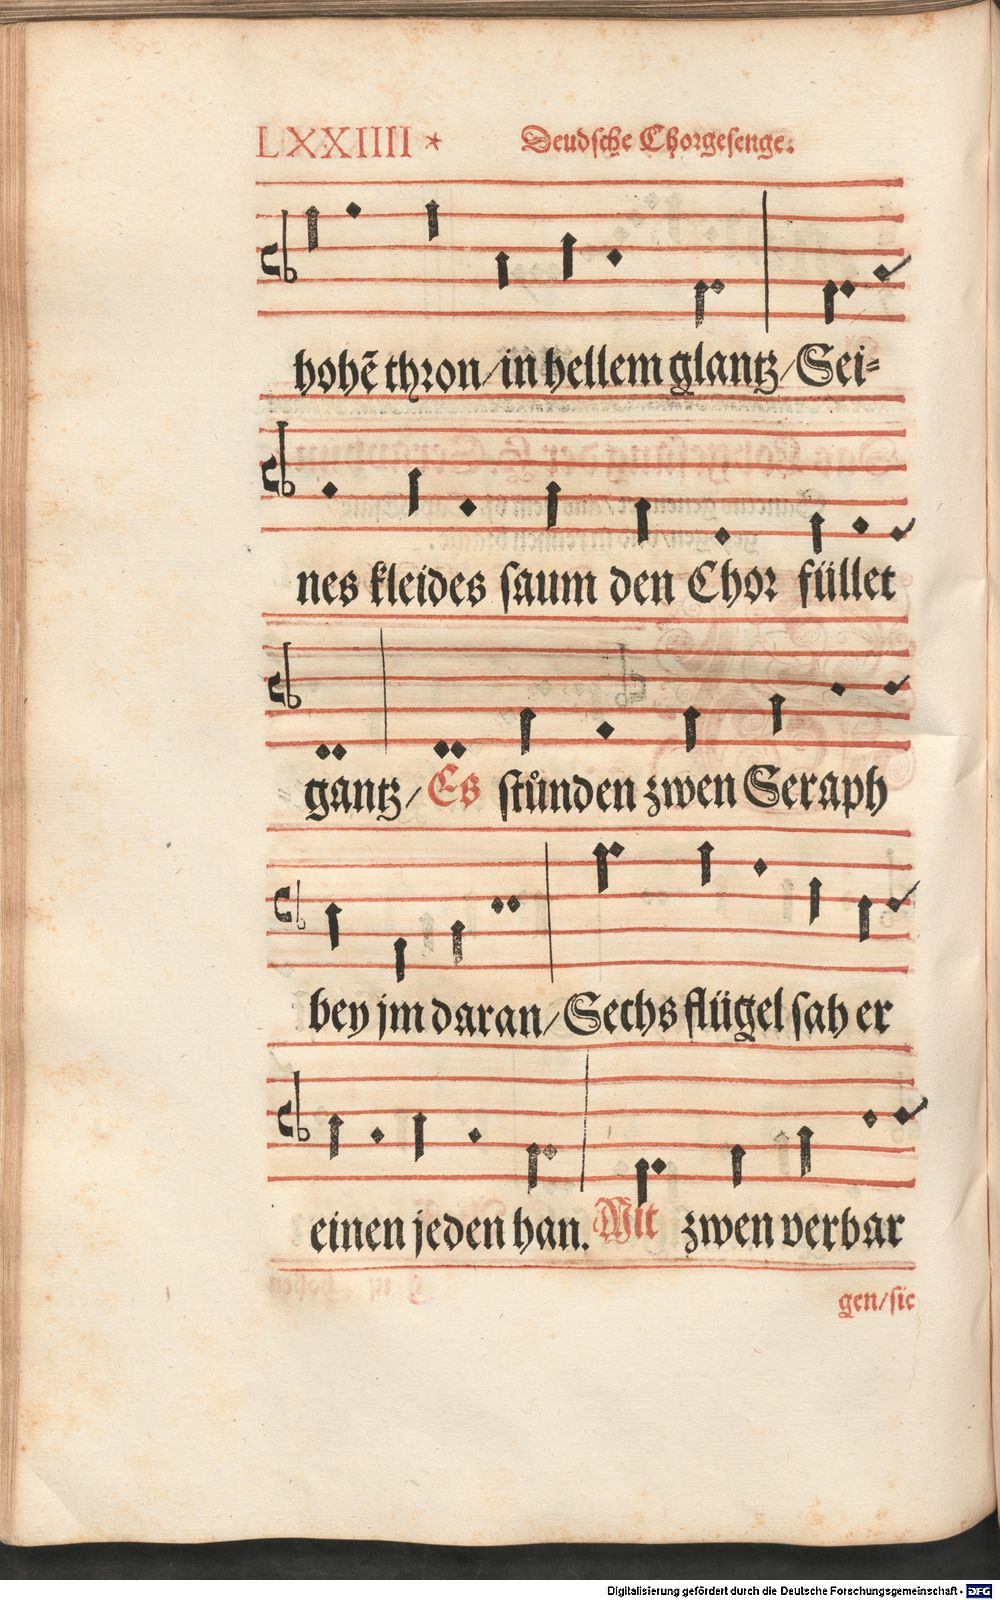 LXXIIII * Deudsche Chorgesenge.
hohẽ thron/in hellem glantz/Sei=
nes kleides saum den Chor füllet
gantz/Es stůnden zwen Seraph
bey jm daran/Sechs flügel sah er
einen jeden han. Mit zwen verbar
gen/sie
Digitalisierung gefördert durch die Deutsche Forschungsgemeinschaft - DFG